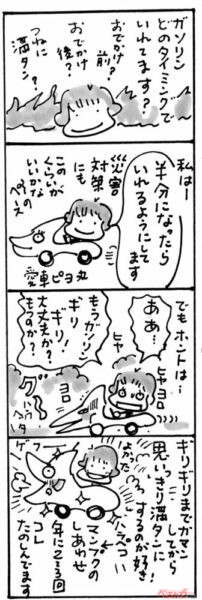 ガソリン
どのタイミングで
いれてます?
おでかけ前?
おでかけ後?
つねに
満タン?
私はー
半分になったら
いれるようにして
ます
災害
対策
にも
このくらいが
いいかな
のペース
愛車ピヨ丸
でもホントは…
ああ…
もうガソリン
ギリ
ギリ!
大丈夫か?
もつのか?
ヒヤ
ヒヤ
ヨロ
ヨロ
ギリギリまでガマン
してから
思いっきり満タンに
するのが好き
よかった
ハラペコ
マンプクの
しあわせ
年に2~3回
コレ
たのしんでます
ゲフー